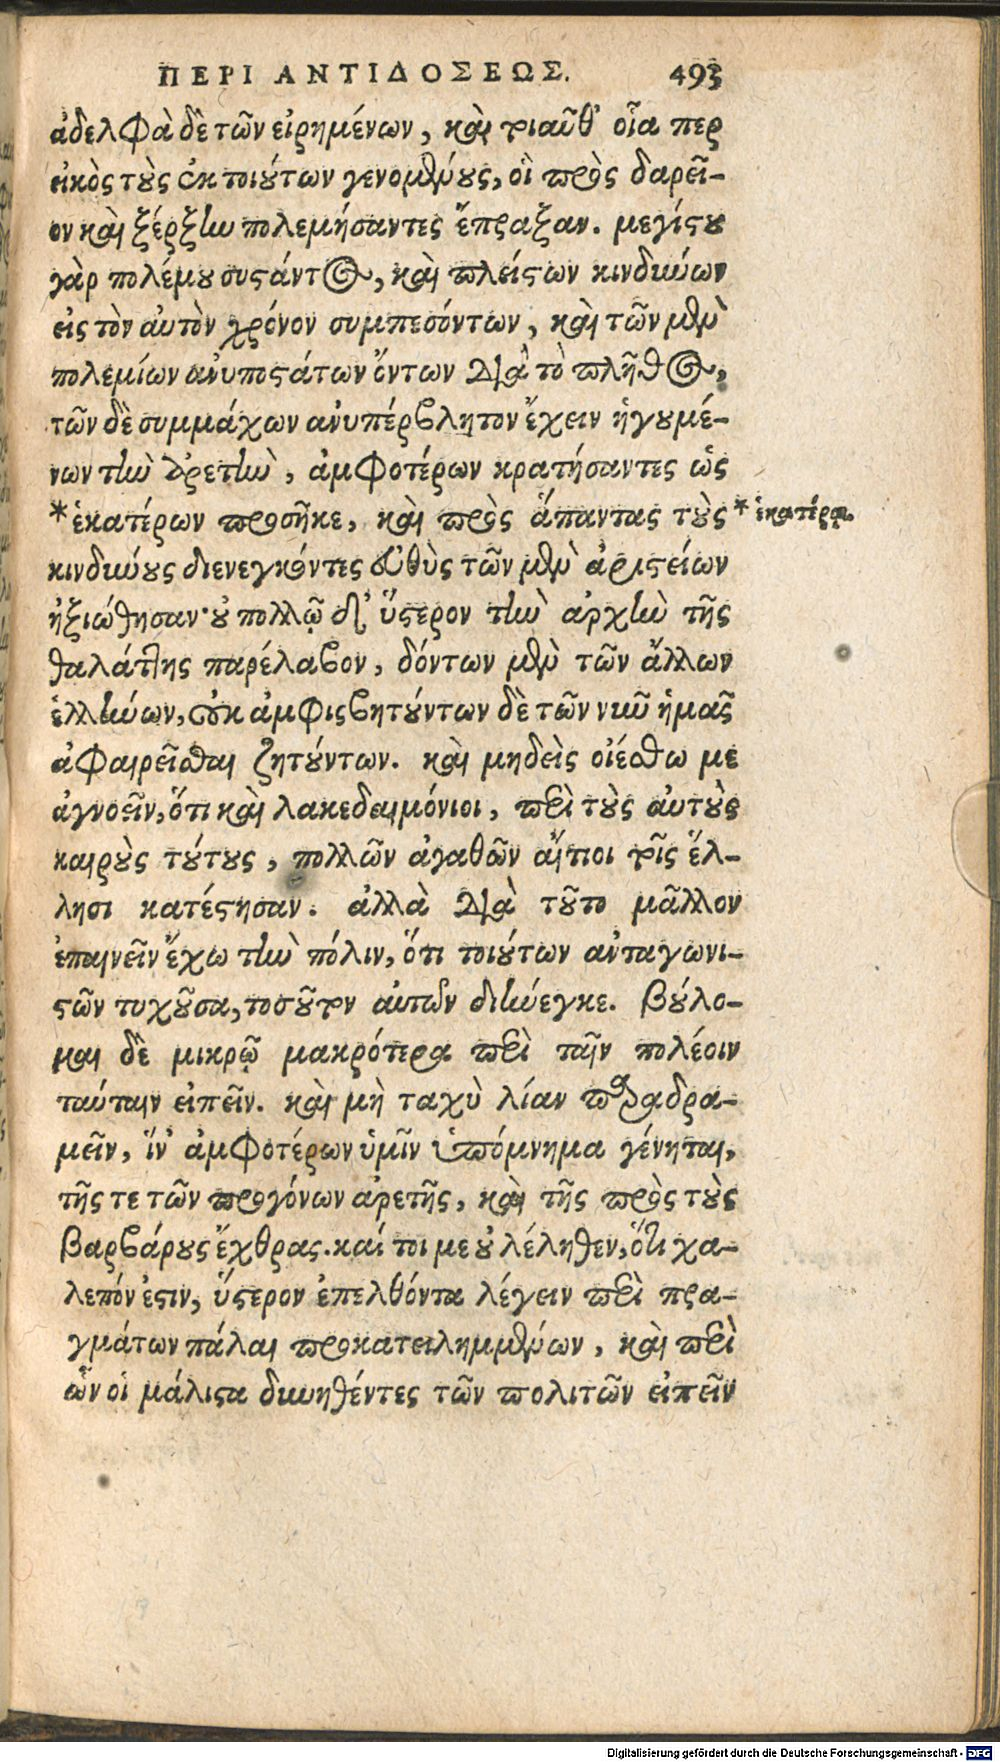 ΠΕΡΙ ΑΝΤΙΔΟΣΕΩΣ. 493
ἀδελφὰ δὲ τῶν εἰρημένων, καὶ τοιαῦθ' οἷά περ
εἰκὸς τοὺς ἐκ τοιούτων γενομένους, οἳ πρὸς δαρεῖ-
ον καὶ ξέρξην πολεμήσαντες ἔπραξαν. μεγίστου
γὰρ πολέμου συστάντος, καὶ πλείστων κινδύνων
εἰς τὸν αὐτὸν χρόνον συμπεσόντων, καὶ τῶν μὲν
πολεμίων ἀνυποστάτων ὄντων διὰ τὸ πλῆθος,
τῶν δὲ συμμάχων ἀνυπέρβλητον ἔχειν ἡγουμέ-
νων τὴν ἀρετὴν, ἀμφοτέρων κρατήσαντες ὡς
*ἑκατέρων προσῆκε, καὶ πρὸς ἅπαντας τοὺς * ἑκατέρᾳ.
κινδύνους διενεγκόντες εὐθὺς τῶν μὲν ἀριστείων
ἠξιώθησαν· οὐ πολλῷ δ' ὕστερον τὴν ἀρχὴν τῆς
θαλάττης παρέλαβον, δόντων μὲν τῶν ἄλλων
ἑλλήνων, οὐκ ἀμφισβητούντων δὲ τῶν νῦν ἡμᾶς
ἀφαιρεῖσθαι ζητούντων. καὶ μηδεὶς οἰέσθω με
ἀγνοεῖν, ὅτι καὶ λακεδαιμόνιοι, περὶ τοὺς αὐτοὺς
καιροὺς τούτους, πολλῶν ἀγαθῶν αἴτιοι τοῖς ἕλ-
λησι κατέστησαν. ἀλλὰ διὰ τοῦτο μᾶλλον
ἐπαινεῖν ἔχω τὴν πόλιν, ὅτι τοιούτων ἀνταγωνι-
στῶν τυχοῦσα, τοσοῦτον αὐτῶν διήνεγκε. βούλο-
μαι δὲ μικρῷ μακρότερα περὶ ταῖν πολέοιν
ταύταιν εἰπεῖν. καὶ μὴ ταχὺ λίαν παραδρα-
μεῖν, ἵν' ἀμφοτέρων ὑμῖν ὑπόμνημα γένηται,
τῆς τε τῶν προγόνων ἀρετῆς, καὶ τῆς πρὸς τοὺς
βαρβάρους ἔχθρας. καί τοι με οὐ λέληθεν, ὅτι χα-
λεπόν ἐστιν, ὕστερον ἐπελθόντα λέγειν περὶ πρα-
γμάτων πάλαι προκατειλημμένων, καὶ περὶ
ὧν οἱ μάλιστα δυνηθέντες τῶν πολιτῶν εἰπεῖν
Digitalisierung gefördert durch die Deutsche Forschungsgemeinschaft - DFG